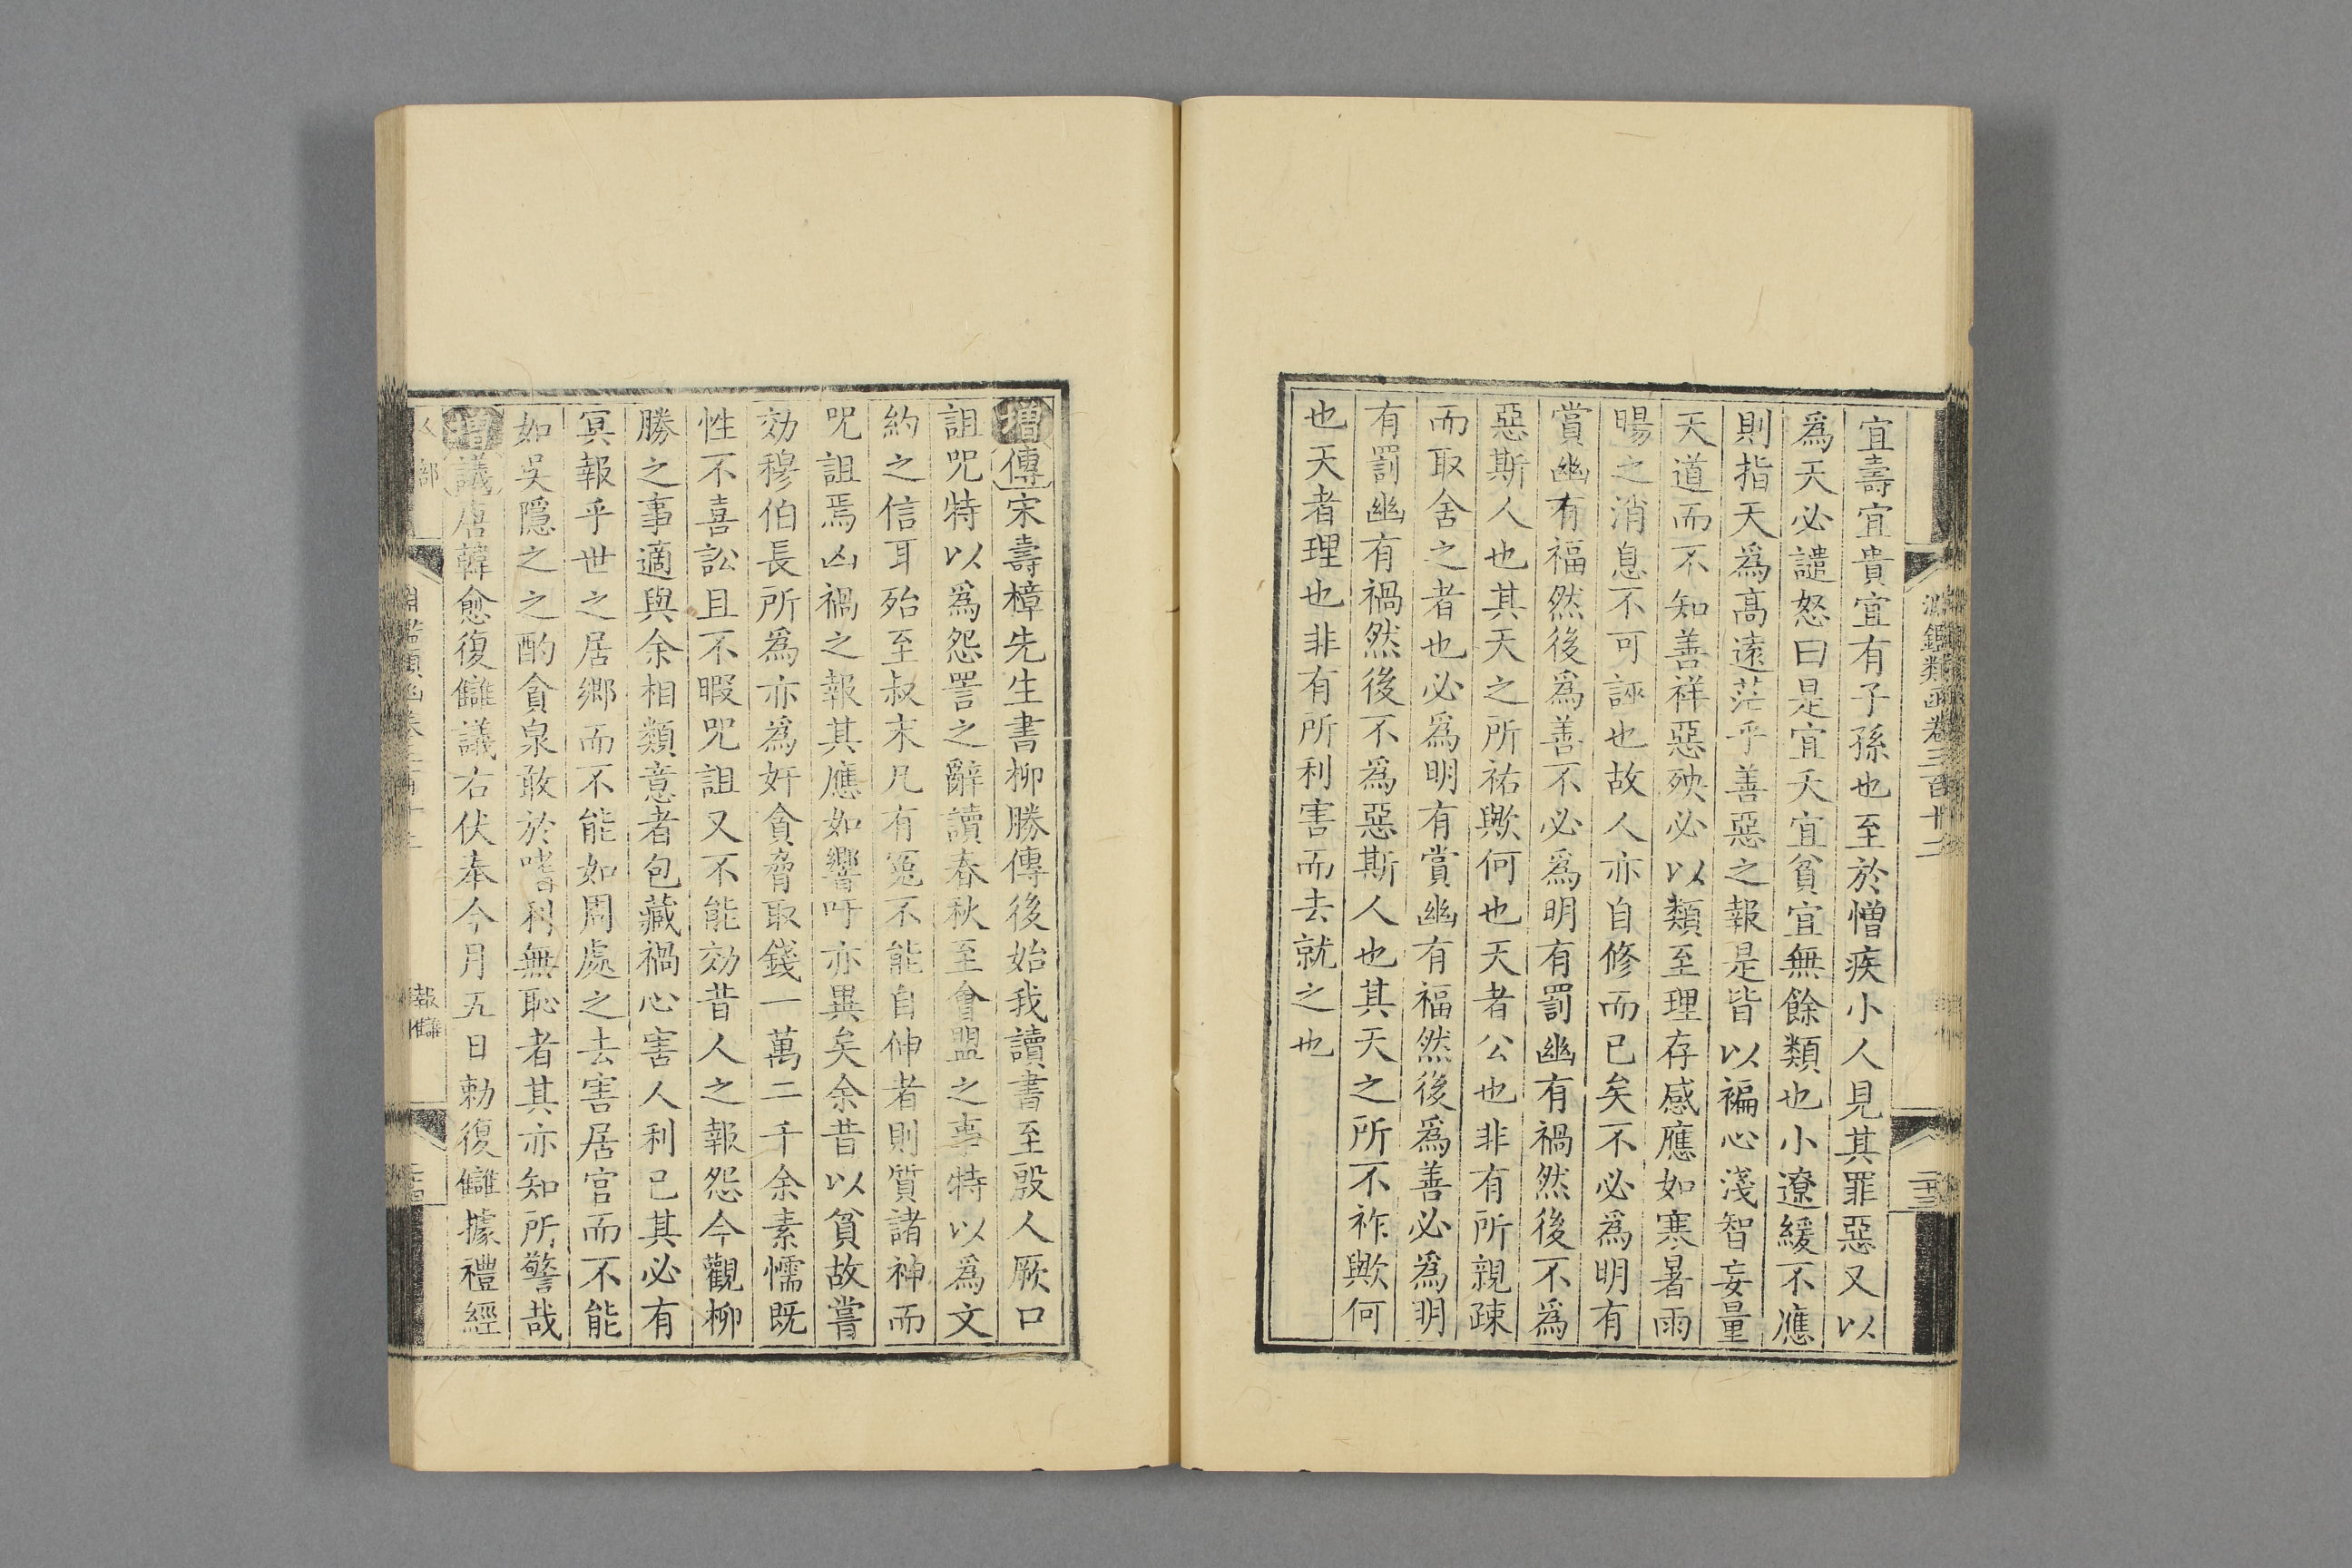 淵鑑類函卷三百十二
二十三
宜壽宜貴宜有子孫也至於憎疾小人見其罪惡又以
爲天必譴怒曰是宜夭宜貧宜無餘類也小遼緩不應
則指天爲高遠茫乎善惡之報是皆以褊心淺智妄量
天道而不知善祥惡殃必以類至理存感應如寒暑雨
暘之消息不可誣也故人亦自修而已矣不必爲明有
賞幽有福然後爲善不必爲明有罰幽有禍然後不爲
惡斯人也其天之所祐歟何也天者公也非有所親疎
而取舍之者也必爲明有賞幽有福然後爲善必爲明
有罰幽有禍然後不爲惡斯人也其天之所不祚歟何
也天者理也非有所利害而去就之也
增傳宋壽樟先生書柳勝傳後始我讀書至殷人厥口
詛呪特以爲怨詈之辭讀春秋至會盟之事特以爲文
約之信耳殆至叔末凡有冤不能自伸者則質諸神而
呪詛焉凶禍之報其應如響吁亦異矣余昔以貧故嘗
効穆伯長所爲亦爲奸貪脅取錢一萬二千余素懦既
性不喜訟且不暇呪詛又不能効昔人之報怨今觀柳
勝之事適與余相類意者包藏禍心害人利己其必有
冥報乎世之居鄉而不能如周處之去害居官而不能
如吳隱之之酌貪泉敢於嗜利無恥者其亦知所警哉
增議唐韓愈復讎議右伏奉今月五日勅復讎據禮經
部
報讎